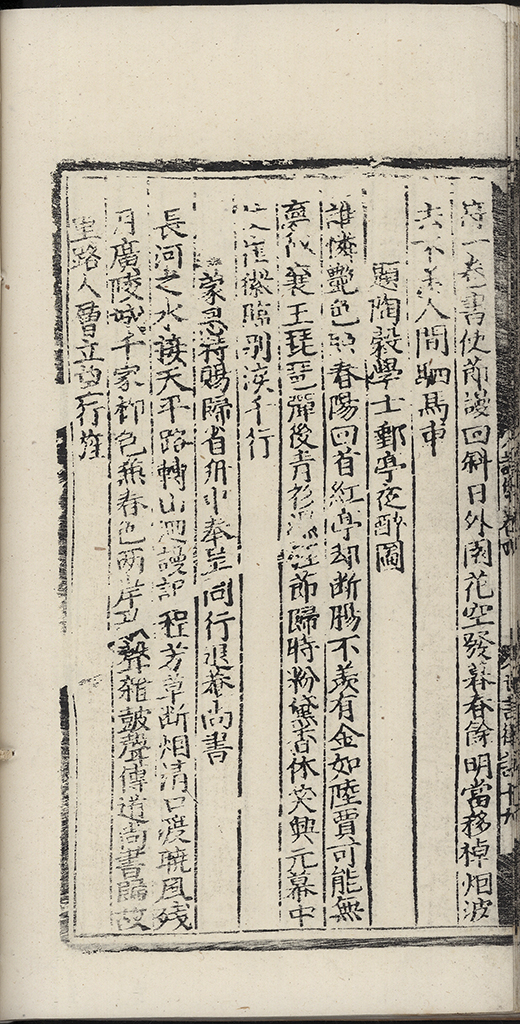 一卷書使節謾回斜日外園花空發暮春餘明當移棹烟波
去不羨人間駟馬車
題陶縠學士郵亭夜酌圖
誰憐艷色照春陽回首紅亭却断膓不羨有金如陸賈可能無
夢似襄王琵琶彈後青衫濕節歸時粉黛香休笑興元幕中
崔徽臨别淚千行
蒙恩特賜歸省舟中奉呈同行退菴尚書
長河之水接天平路轉山迴謾記程芳草断烟清口渡曉風殘
月廣陵城千家柳色兼春色兩岸聲雜皷聲傳道尚書歸故
里路人曹立望行旌